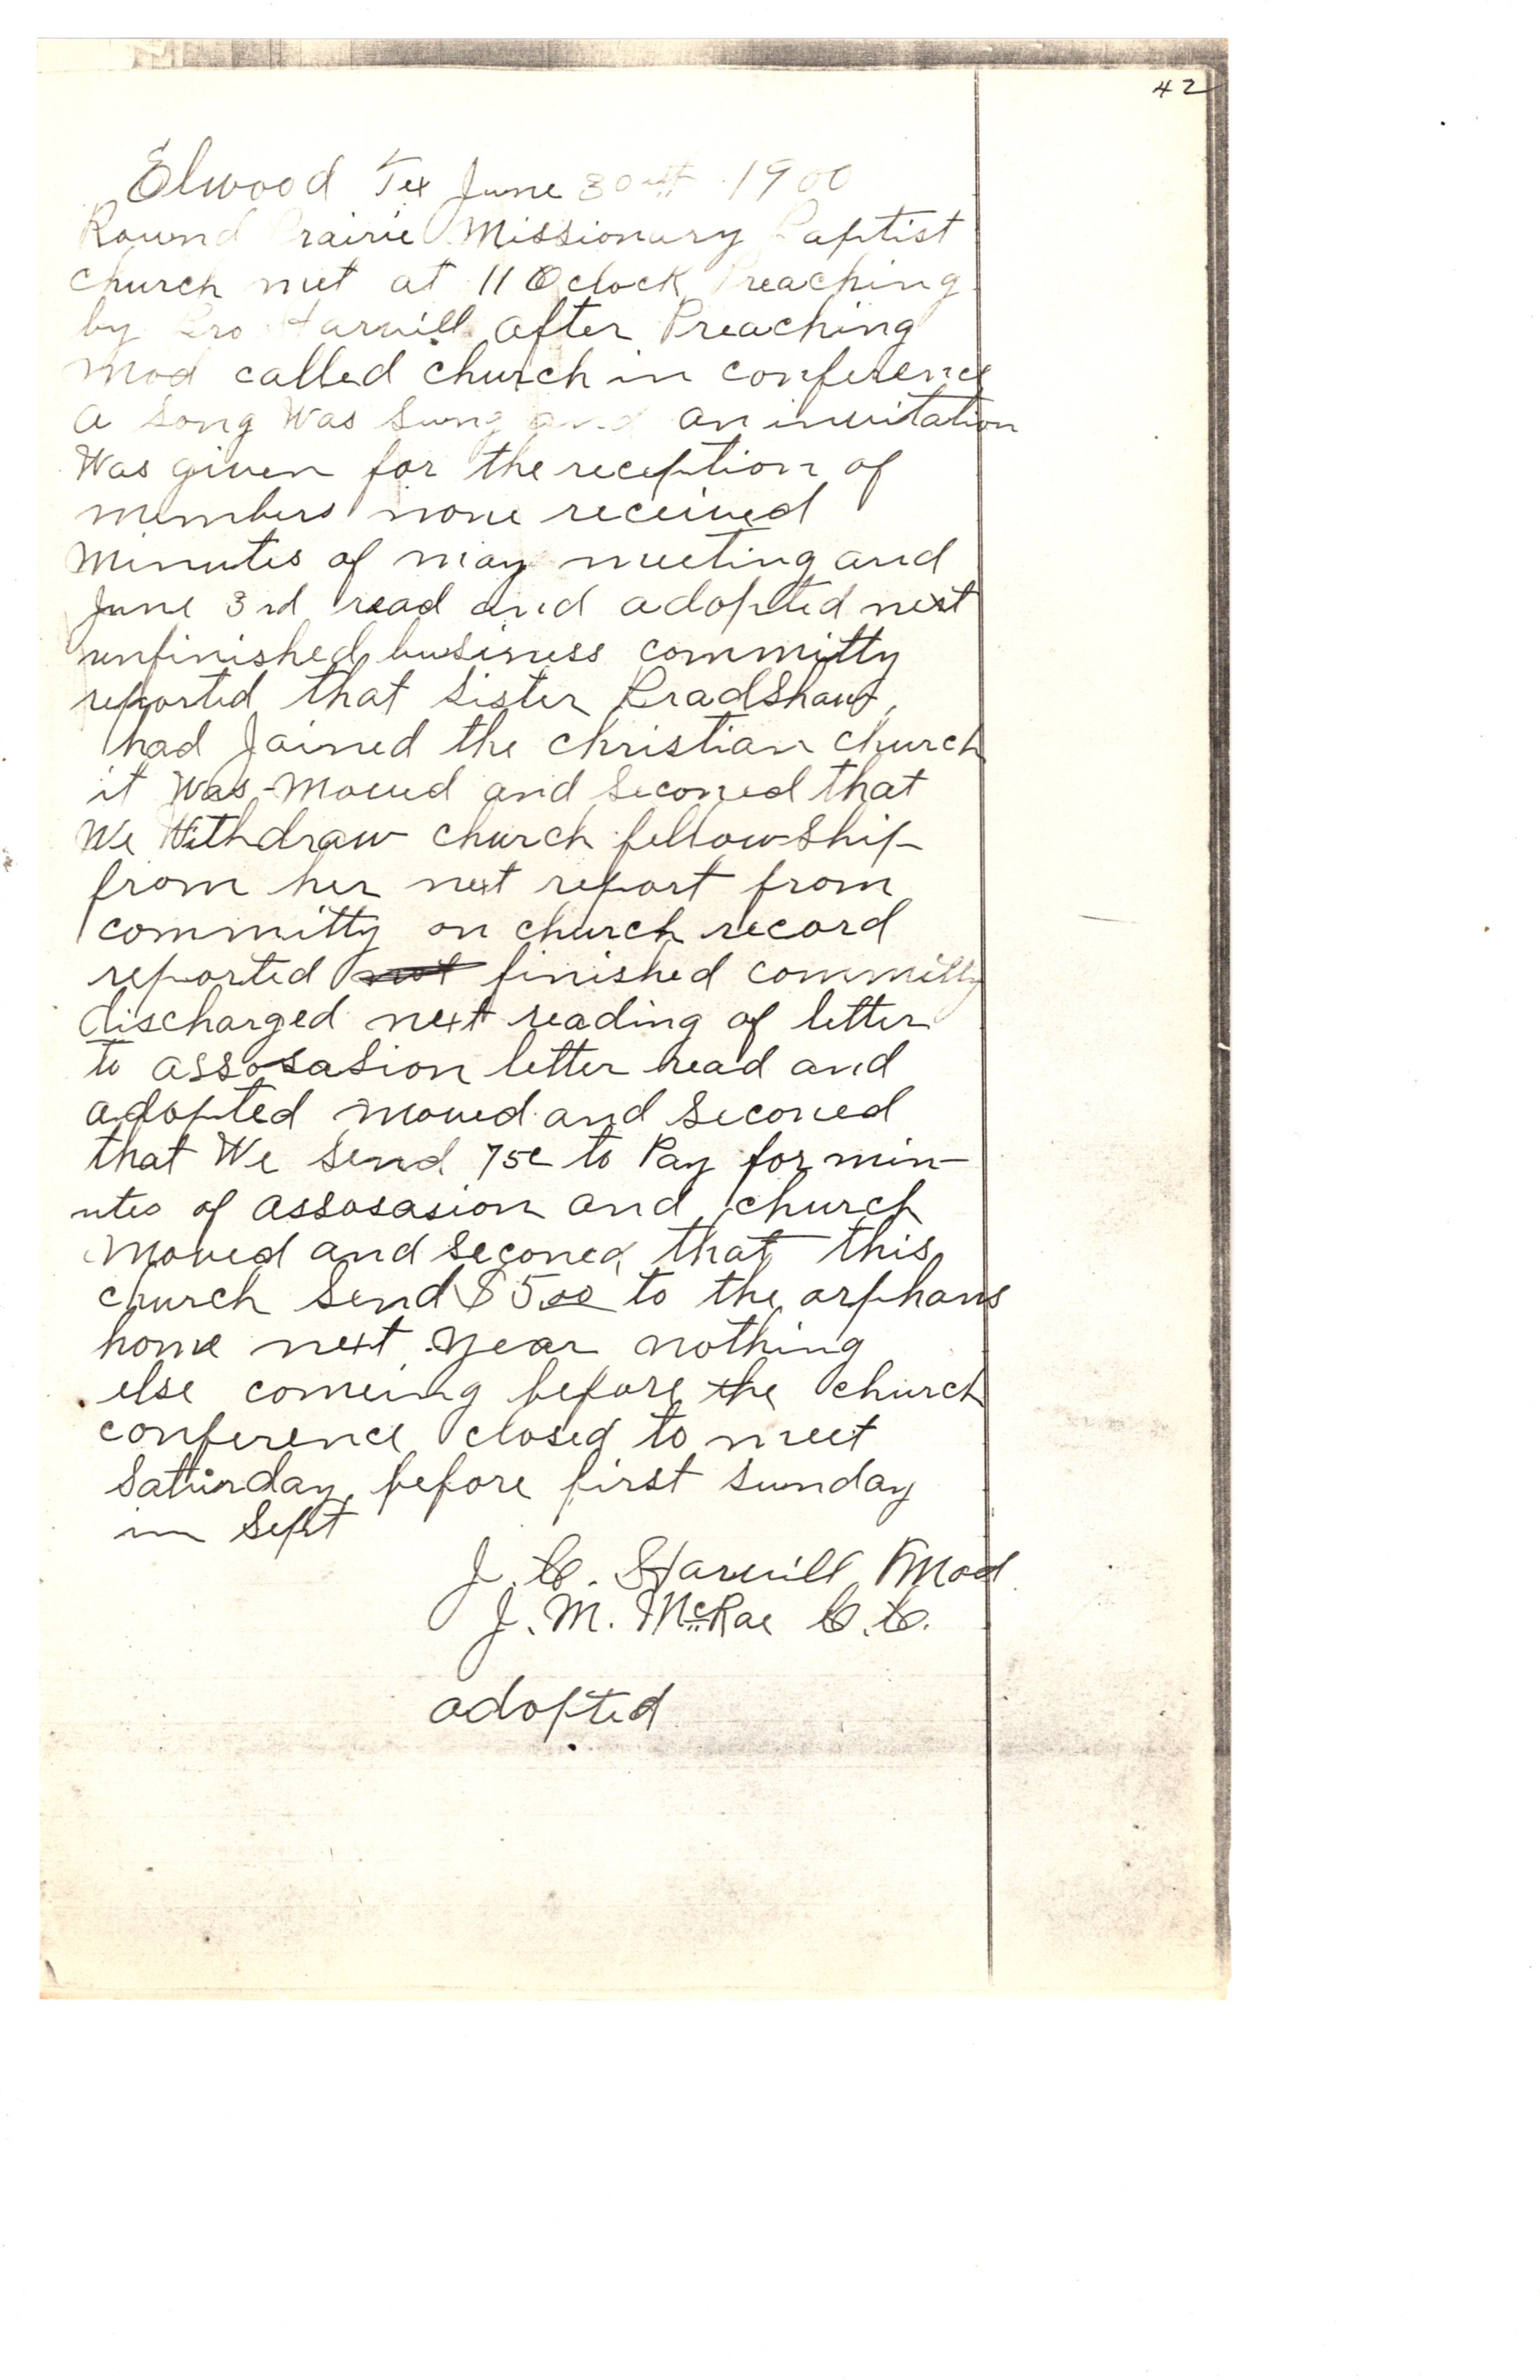 42
Elwood Tex June 30th 1900
Round Prairie Missionary Baptist
church met at 11 Oclock Preaching
by Bro Harvill after Preaching
Mod called church in conference
a song Was Sung and an invitation
Was given for the reception of
members none received
minutes of may meeting and
June 3rd read and adopted next
unfinished business committy
reported that Sister BradShaw
had Joined the christian church
it Was Moved and Seconed that
We Withdraw church fellowShip
from her next report from
committy on church record
reported not finished committy
discharged next reading of letter
to assosasion letter read and
adopted moved and Seconed
that We Send 75c to Pay for min-
utes of assosasion and church
Moved and Seconed that this
church Send $5.00 to the orphans
home next year nothing
else comeing before the church
conference closed to meet
Saturday before first Sunday
in Sept
J. C. Harvill Mod
J. M. McRae C. C.
adopted